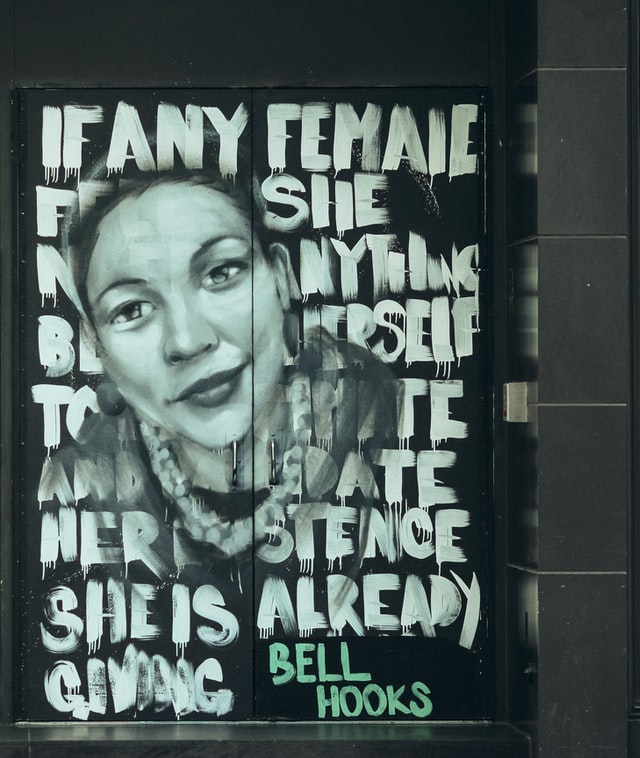 IF ANY FEMALE
SHE
NYTHING
HERSELF
TO
AND DATE
HER STENCE
SHE IS ALREADY
GIVING
BELL
HOOKS